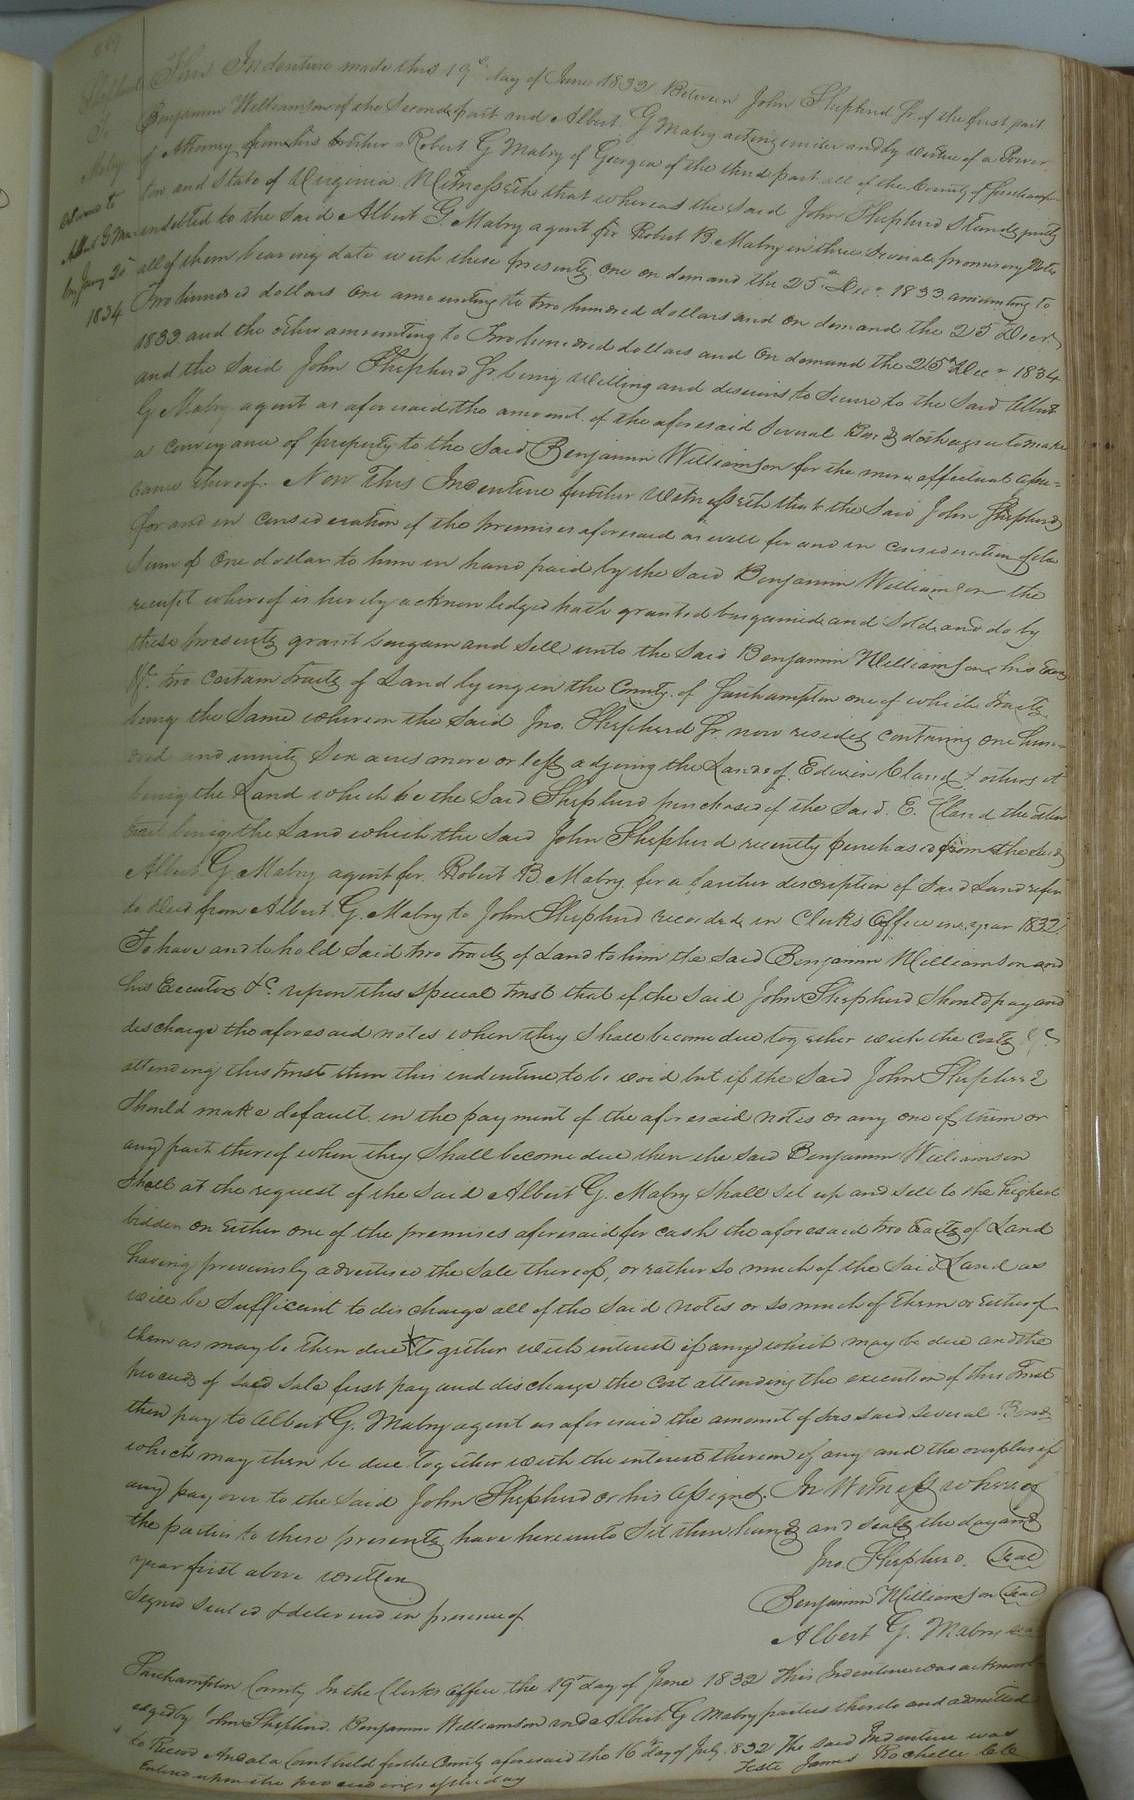 Shepherd
To
Mabry
Albert G Ma
by Jany 20th
1834
This Indenture made this 19th day of June 1832 Between John Shepherd Jr. of the first part
Benjamin Williamson of the Second part and Albert G Mabry acting under and by virtue of a Power
of Attorney from his brother Robert G Mabry of Georgia of the third part all of the County of Southamp-
ton and State of Virginia Witnesseth that whereas the said John Shepherd Stands justly
indebted to the said Albert G. Mabry agent for Robert B. Mabry in three several promisory notes
all of them bearing date with these presents one on demand the 25th Decr. 1833 amounting to
Two hundred dollars one amounting to two hundred dollars and on demand the 25th Decr
1833 and the other amounting to Two hundred dollars and on demand the 25th Decr 1834
and the said John Shepherd Jr. being willing and desirous to secure to the said Albert
G Mabry agent as aforesaid the amount of the aforesaid several doth agree to make
a conveyance of property to the said Benjamin Williamson for the more effectual assu=
rance thereof. Now This Indenture further Witnesseth that the said John Shepherd
for and in consideration of the premises aforesaid as well for and in consideration of the
sum of one dollar to him in hand paid by the said Benjamin Williamson the
receipt whereof is hereby acknowledged hath granted bargained and sold and do by
these presents grant bargain and sell unto the said Benjamin Williamson his
&c. two certain tracts of Land lying in the County of Southampton one of which tracts
being the same wherein the said Jno. Shepherd Jr. now resides containing one hun-
dred and ninety six acres more or less adjoing the Lands of Edwin Claud & others it
being the Land which he the said Shepherd purchased of the said E. Claud the other
tract being the Land which the said John Shepherd recently purchased from the said
Albert G. Mabry agent for Robert B Mabry for a further description of said Land refer
to deed from Albert G. Mabry to John Shepherd recorded in Clerks Office in year 1832.
To have and to hold said two tracts of Land to him the said Benjamin Williamson and
his Executors &c. upon this special trust that if the said John Shepherd should pay and
discharge the aforesaid notes when they shall become due together with the costs &c
attending this trust then this indenture to be void but if the said John Shepherd
should make default in the payment of the aforesaid notes or any one of them or
any part thereof when they shall become due then the said Benjamin Williamson
shall at the request of the said Albert G. Mabry shall set up and sell to the highest
bidder on either one of the premises aforesaid for cash the aforesaid two tracts of Land
having previously advertised the sale thereof, or rather so much of the said Land as
will be sufficient to discharge all of the said notes or so much of them or either of
them as may be then due together with interest if any which may be due and the
proceeds of said sale first pay and discharge the cost attending the execution of this trust
then pay to Albert G. Mabry agent as aforesaid the amount of said several
which may then be due together with the interest thereon if any and the overplus if
any pay over to the said John Shepherd or his assigns. In Witness whereof
the parties to these presents have hereunto set their hands and seals the day and
year first above written
Signed sealed & delivered in presence of
Jno. Shepherd. Seal
Benjamin Williamson Seal
Albert G. Mabry seal
Southampton County In the Clerks Office the 19th day of June 1832 This Indenture was acknowl-
edged by John Shepherd. Benjamin Williamson and Albert G Mabry parties thereto and admitted
to Record And at a Court held for the County aforesaid the 16th day of July 1832 The said Indenture was
Entered upon the proceedings of the day
Teste James Rochelle